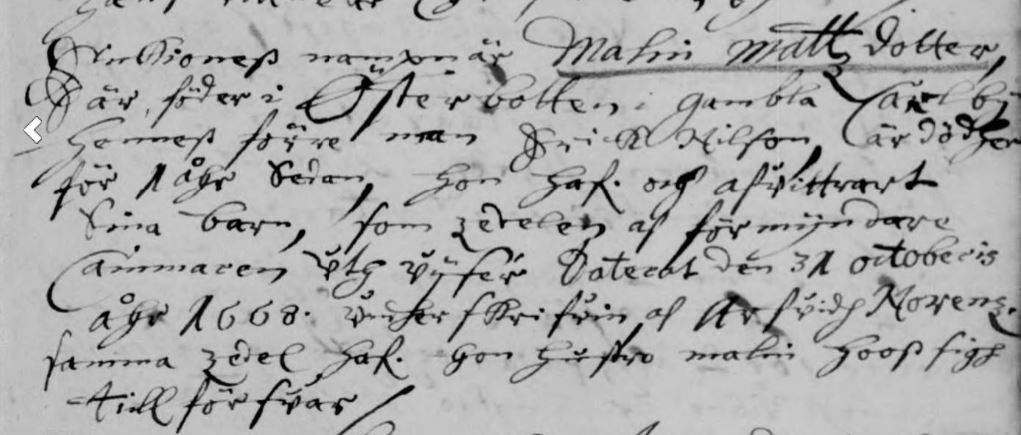 Enkioneß nampn är Malin Matt dotter,
är föder i Österbotten i gambla Carl by
hennes förre man Erich Nilson, är dödher
för 1 åhr sedan, hon haf. och afvittrart
sina barn, som zedelen af förmyndare
Cammaren uth vijser Daterat den 31 octobris
åhr 1668. underskrifvin af Arfvidh Noreng.
samma zedel haf. hon hustro malin hooß sigh
till försvar /